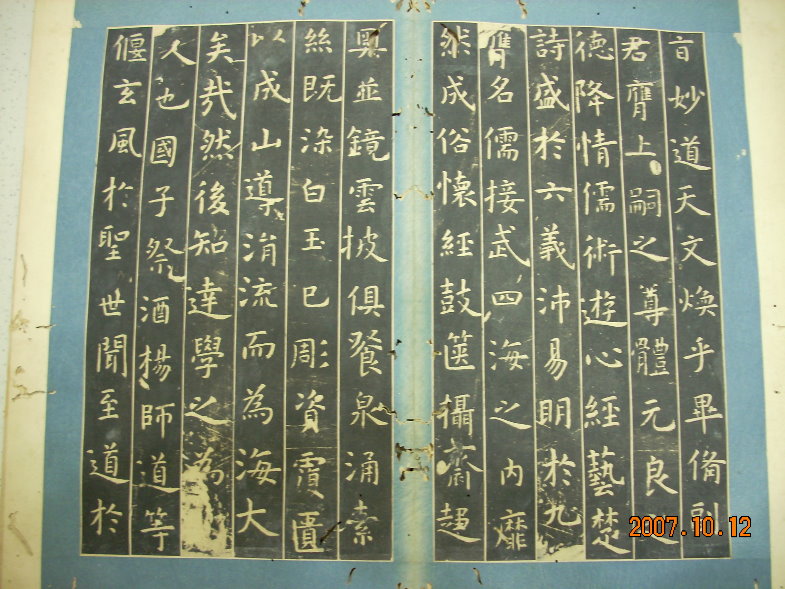 妙道天文煥乎畢備副
君膺上嗣之尊體元良之
德降情儒術遊心經藝楚
詩盛於六義沛易明於九
名儒接武四海之內靡
然成俗懷經鼓篋攝齋趍
奧並鏡雲披俱飡泉涌素
絲既染白玉已彫資覆匱
以成山導涓流而為海大
矣哉然後知達學之為
人也國子祭酒楊師道等
偃玄風於聖世聞至道於
2007.10.12